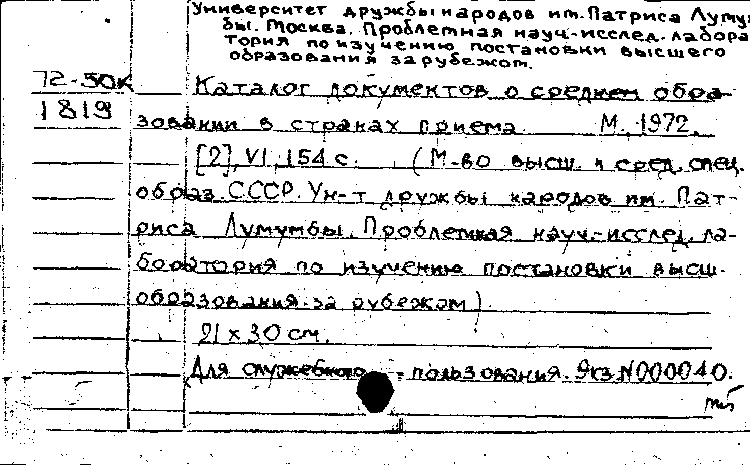 Университет дружбы народов им. Патриса Лумум
бы. Москва. Проблемная науч.-исслед. лабора
тория по изучению постановки высшего
образования за рубежом.
72-50К Каталог документов о среднем обра-
1819 зовании в странах приема. М., 1972.
[2], VI, 154 с. (М-во высш. и сред. спец.
образ. СССР. Ун-т дружбы народов им. Пат-
риса Лумумбы. Проблемная науч.-исслед. ла-
боратория по изучению постановки высш.
образования за рубежом).
21 х 30 см.
Для служебного пользования. Экз. N000040.